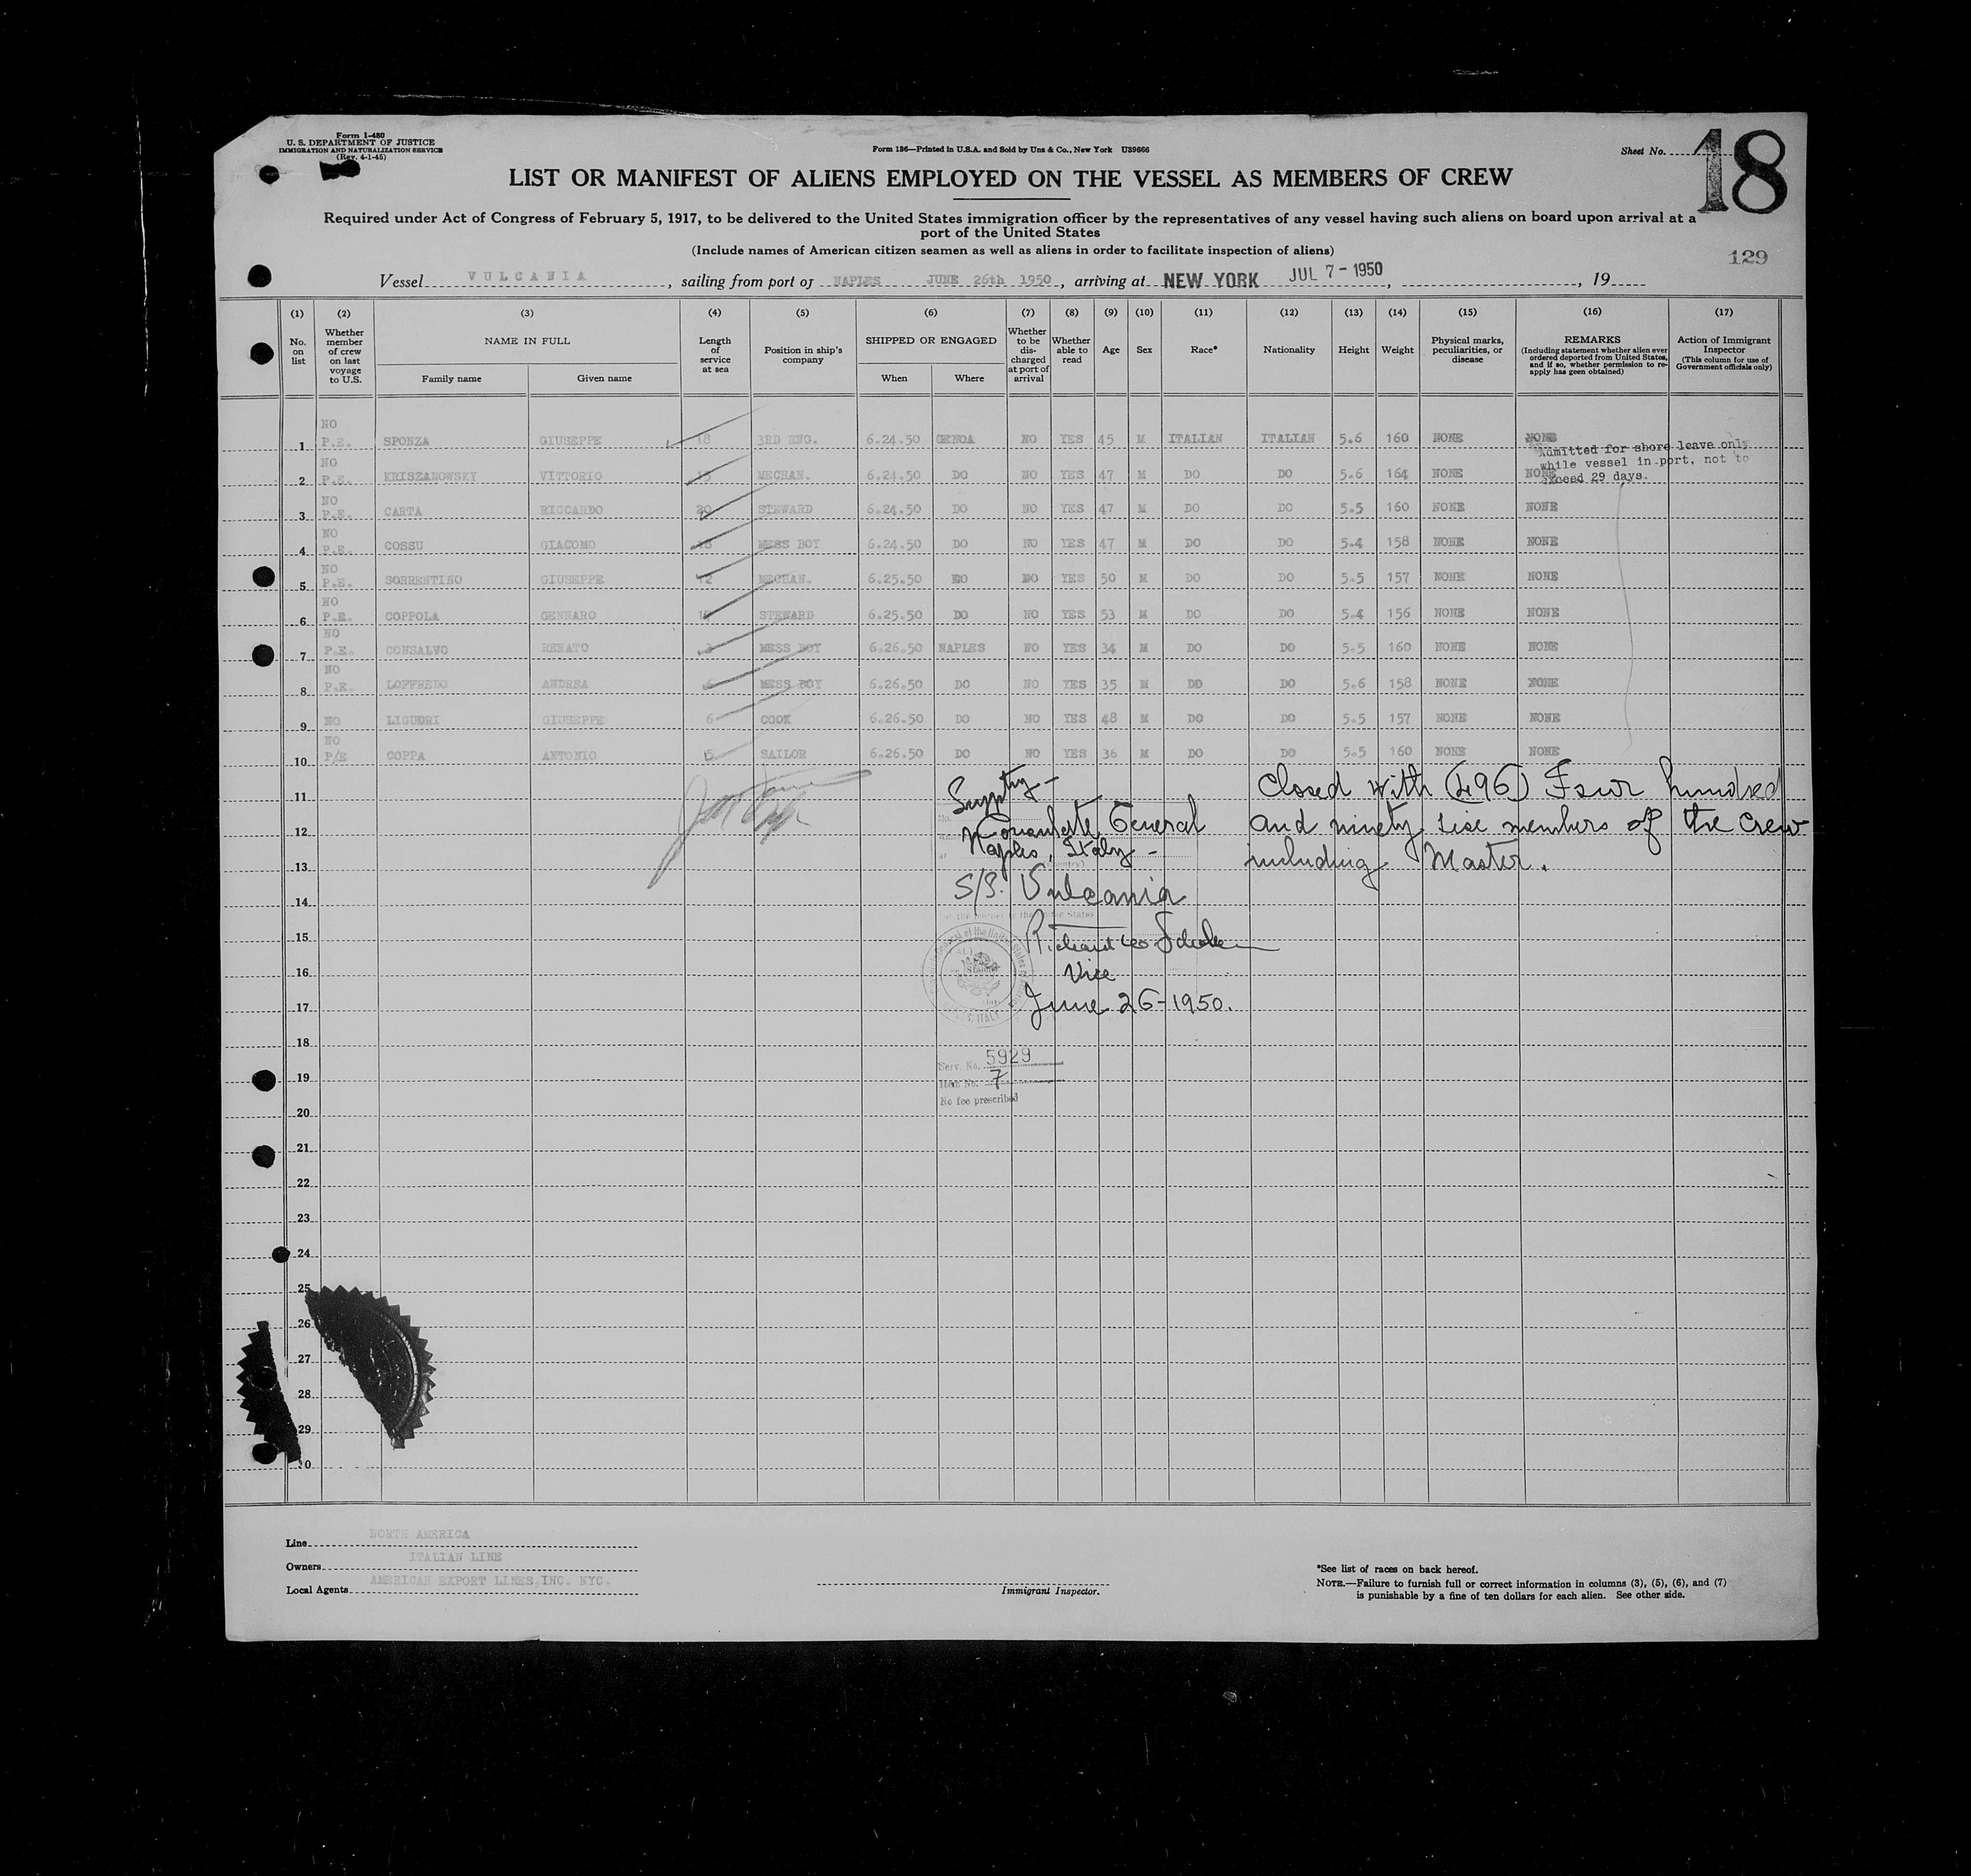 Form I-480
U. S. DEPARTMENT OF JUSTICE
IMMIGRATION AND NATURALIZATION SERVICE
(Rev. 4-1-45)
Form 136—Printed in U.S.A. and Sold by Unz & Co., New York U39666
Sheet No. 18
LIST OR MANIFEST OF ALIENS EMPLOYED ON THE VESSEL AS MEMBERS OF CREW
Required under Act of Congress of February 5, 1917, to be delivered to the United States immigration officer by the representatives of any vessel having such aliens on board upon arrival at a
port of the United States
(Include names of American citizen seamen as well as aliens in order to facilitate inspection of aliens)
129
Vessel VULCANIA, sailing from port of NAPLES JUNE 26th 1950, arriving at NEW YORK JUL 7 - 1950, , 19
(1) (2) (3) (4) (5) (6) (7) (8) (9) (10) (11) (12) (13) (14) (15) (16) (17)
No. on list
Whether member of crew on last voyage to U.S.
NAME IN FULL
Family name Given name
Length of service at sea
Position in ship's company
SHIPPED OR ENGAGED
When Where
Whether to be discharged at port of arrival
Whether able to read
Age
Sex
Race*
Nationality
Height
Weight
Physical marks, peculiarities, or disease
REMARKS
(Including statement whether alien ever ordered deported from United States, and if so, whether permission to re-apply has geen obtained)
Action of Immigrant Inspector
(This column for use of Government officials only)
1 NO P.E. SPONZA GIUSEPPE 18 3RD ENG. 6.24.50 GENOA NO YES 45 M ITALIAN ITALIAN 5.6 160 NONE NONE
Admitted for shore leave only
while vessel in port, not to
exceed 29 days.
2 NO P.E. KRISZANOWSKY VITTORIO MECHAN. 6.24.50 DO NO YES 47 M DO DO 5.6 164 NONE NONE
3 NO P.E. CARTA RICCARDO 20 STEWARD 6.24.50 DO NO YES 47 M DO DO 5.5 160 NONE NONE
4 NO P.E. COSSU GIACOMO MESS BOY 6.24.50 DO NO YES 47 M DO DO 5.4 158 NONE NONE
5 NO P.E. SORRENTINO GIUSEPPE 12 MECHAN. 6.25.50 DO NO YES 50 M DO DO 5.5 157 NONE NONE
6 NO P.E. COPPOLA GENNARO STEWARD 6.25.50 DO NO YES 53 M DO DO 5.4 156 NONE NONE
7 NO P.E. CONSALVO RENATO MESS BOY 6.26.50 NAPLES NO YES 34 M DO DO 5.5 160 NONE NONE
8 NO P.E. LOFFREDO ANDREA MESS BOY 6.26.50 DO NO YES 35 M DO DO 5.6 158 NONE NONE
9 NO LIGUORI GIUSEPPE 6 COOK 6.26.50 DO NO YES 48 M DO DO 5.5 157 NONE NONE
10 NO P/E COPPA ANTONIO 5 SAILOR 6.26.50 DO NO YES 36 M DO DO 5.5 160 NONE NONE
11
12
13
14
15
16
17
18
19
20
21
22
23
24
25
26
27
28
29
Closed with (496) Four hundred
and ninety sixe members of the Crew
including Master.
Consulate General
Naples, Italy -
S/S. Vulcania
Vice
June 26-1950.
Serv. No. 5929
Item No. 7
No fee prescribed
Line NORTH AMERICA
Owners ITALIAN LINE
Local Agents AMERICAN EXPORT LINES, INC. NYC.
Immigrant Inspector.
*See list of races on back hereof.
NOTE.—Failure to furnish full or correct information in columns (3), (5), (6), and (7)
is punishable by a fine of ten dollars for each alien. See other side.